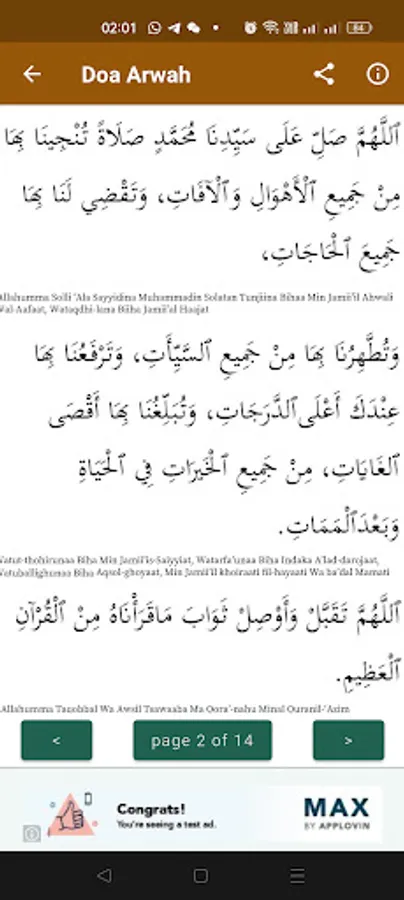 02:01
84
Doa Arwah
ٱللَّهُمَّ صَلِّ عَلَى سَيِّدِنَا مُحَمَّدٍ صَلَاةً تُنْجِينَا بِهَا
مِنْ جَمِيعِ ٱلْأَهْوَالِ وَٱلْآفَاتِ، وَتَقْضِي لَنَا بِهَا
جَمِيعَ ٱلْحَاجَاتِ،
Allahumma Solli 'Ala Sayyidina Muhammadin Solatan Tunjiina Bihaa Min Jamii'il Ahwali
Wal-Aafaat, Wataqdhi-lana Biiha Jamii'al Haajat
وَتُطَهِّرُنَا بِهَا مِنْ جَمِيعِ ٱلسَّيِّأَتِ، وَتَرْفَعُنَا بِهَا
عِنْدَكَ أَعْلَى ٱلدَّرَجَاتِ، وَتُبَلِّغُنَا بِهَا أَقْصَى
ٱلْغَايَاتِ، مِنْ جَمِيعِ ٱلْخَيْرَاتِ فِي ٱلْحَيَاةِ
وَبَعْدَٱلْمَمَاتِ.
Watut-thohirunaa Biha Min Jamii'is-Saiyyiat, Watarfa'unaa Biha Indaka A'lad-darojaat,
Watuballighunaa Biha Aqsol-ghoyaat, Min Jamii'il khoiraati fil-hayaati Wa ba'dal Mamati
ٱللَّهُمَّ تَقَبَّلْ وَأَوْصِلْ ثَوَابَ مَاقَرَأْنَاهُ مِنْ ٱلْقُرْآنِ
ٱلْعَظِيمِ.
Allahumma Taqobbal Wa Awsil Tsawaaba Ma Qora'-nahu Minal Quranil-'Azim
< page 2 of 14 >
Congrats!
You're seeing a test ad.
MAX
BY APPLOVIN